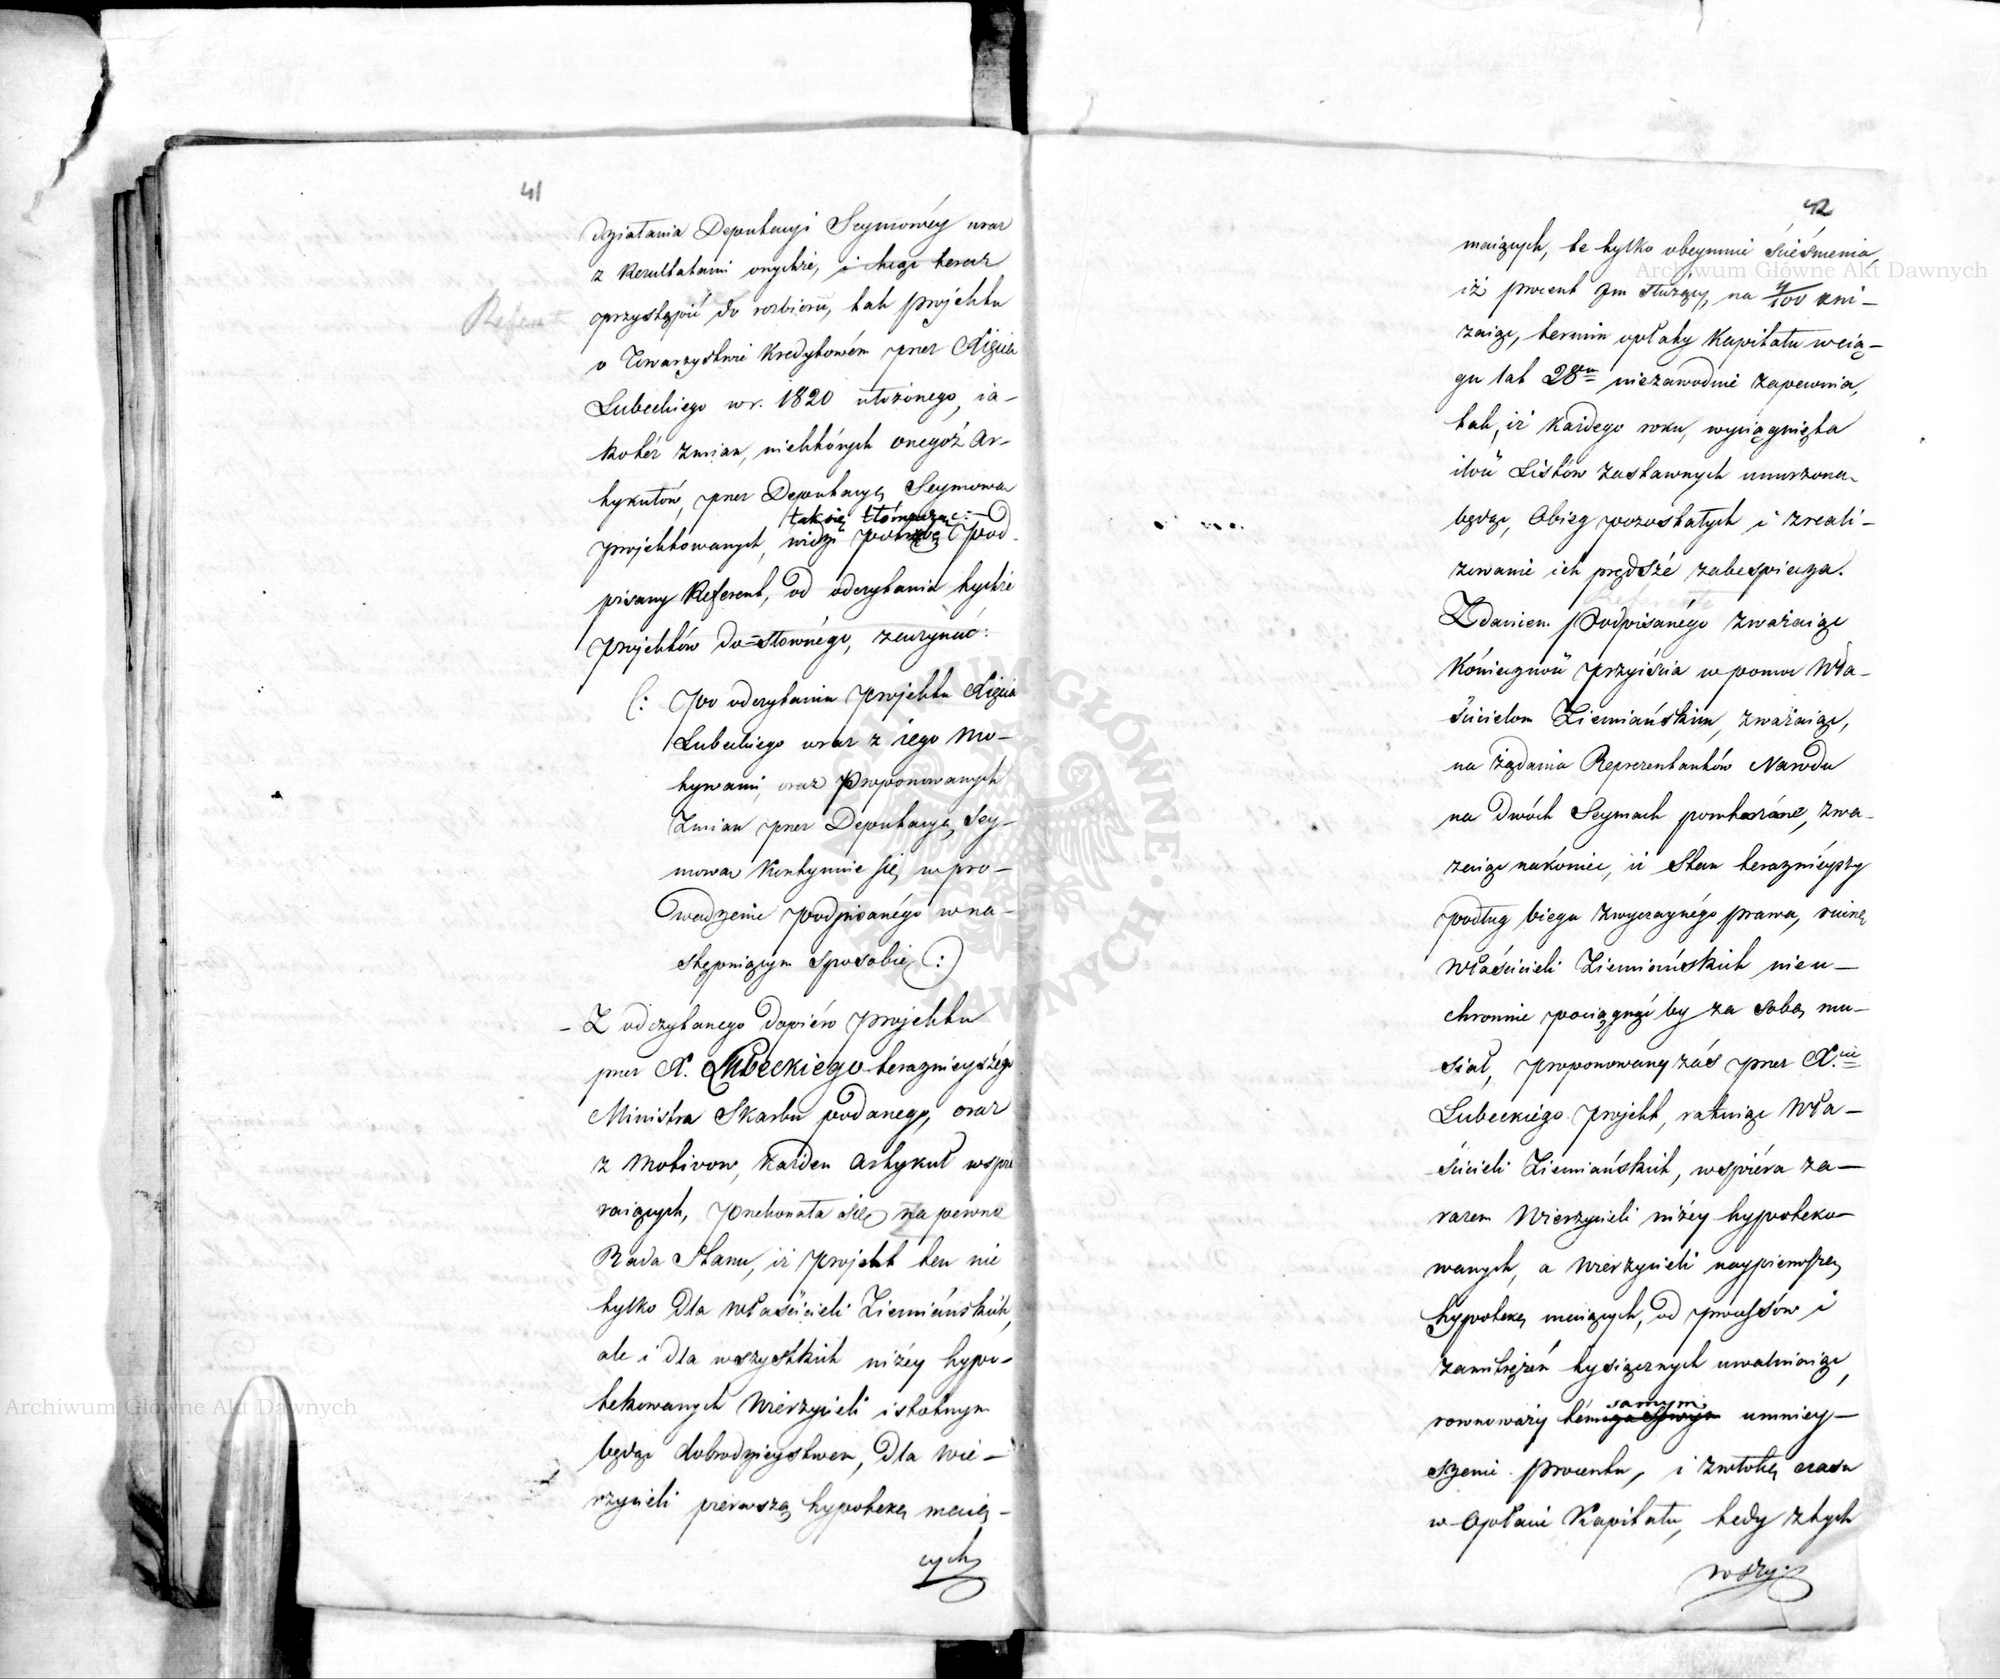 41
działania Deputacyi Seymowéy wraz
z Rezultatami onychże, i chcąc teraz
przystąpić do rozbioru, tak projektu
Referent
o Towarzystwie Kredytowém przez Xięcia
Lubeckiego w r. 1820 ułożonego, ia-
koteż zmian, niektórych onegoż Ar-
tykułów, przez Deputacyą Seymową
tak się tłómacząc:
projektowanych, widzi potrzebę Pod-
pisany Referent, od odczytania tychże
projektów do=słownégo, zaczynać:
(: Po odczytaniu projektu Xięcia
Lubeckiego wraz z iego Mo-
tywami, oraz Proponowanych
Zmian przez Deputacyą Sey-
mową kontynuie się wpro-
wadzenie podpisanégo w na-
stępuiącym sposobie :)
- Z odczytanego dopiéro projektu
przez X. Lubeckiego teraznieyszégo
Ministra Skarbu podanego, oraz
z Motivow, każden Artykuł wspie
raiących, przekonała się na pewno
Rada Stanu, iż projekt ten nie
tylko dla właścicieli Ziemiańskich,
ale i dla wszystkich niżey hypo-
tekowanych Wierzycieli istotnym
będąc dobrodzieystwem, dla Wie-
rzycieli pierwszą hypotekę maią-
cych
42
maiących, te tylko obeymuie ścieśnienia,
iż procent Im służący, na 4/100 zni-
żaiąc, termin opłaty Kapitału w cią-
gu lat 28miu niezawodnie zapewnia,
tak, iż każdego roku, wyciągnięta
ilość Listów Zastawnych umorzona
będąc, Obieg pozostałych i zreali-
zowanie ich prędsźé zabespiecza.
Zdaniem Podpisanégo zważaiąc
Konieczność przyiścia w pomoc Wła-
ścicielom Ziemiańskim, zważaiąc,
na żądania Reprezentantów Narodu
na dwóch Seymach powtarzané, zwa-
żaiąc nakoniec, iż Stan teraznieyszy
podług biegu zwyczaynégo prawa, ruinę
Właścicieli Ziemiańskich nieu-
chronnie pociągnąć by za sobą mu-
siał, proponowany zaś przez X.cia
Lubeckiégo projekt, ratuiąc Wła-
ścicieli Ziemiańskich, wspiéra za-
razem Wierzycieli niżey hypoteko-
wanych, a Wierzycieli naypierwszą
hypotekę maiących, od processów i
zamitrężeń tysiącznych uwalniaiąc,
samym
rownoważy tém umniey-
szenie procentu, i zwłokę czasu
w Opłacie Kapitału, tedy z tych
wszy-